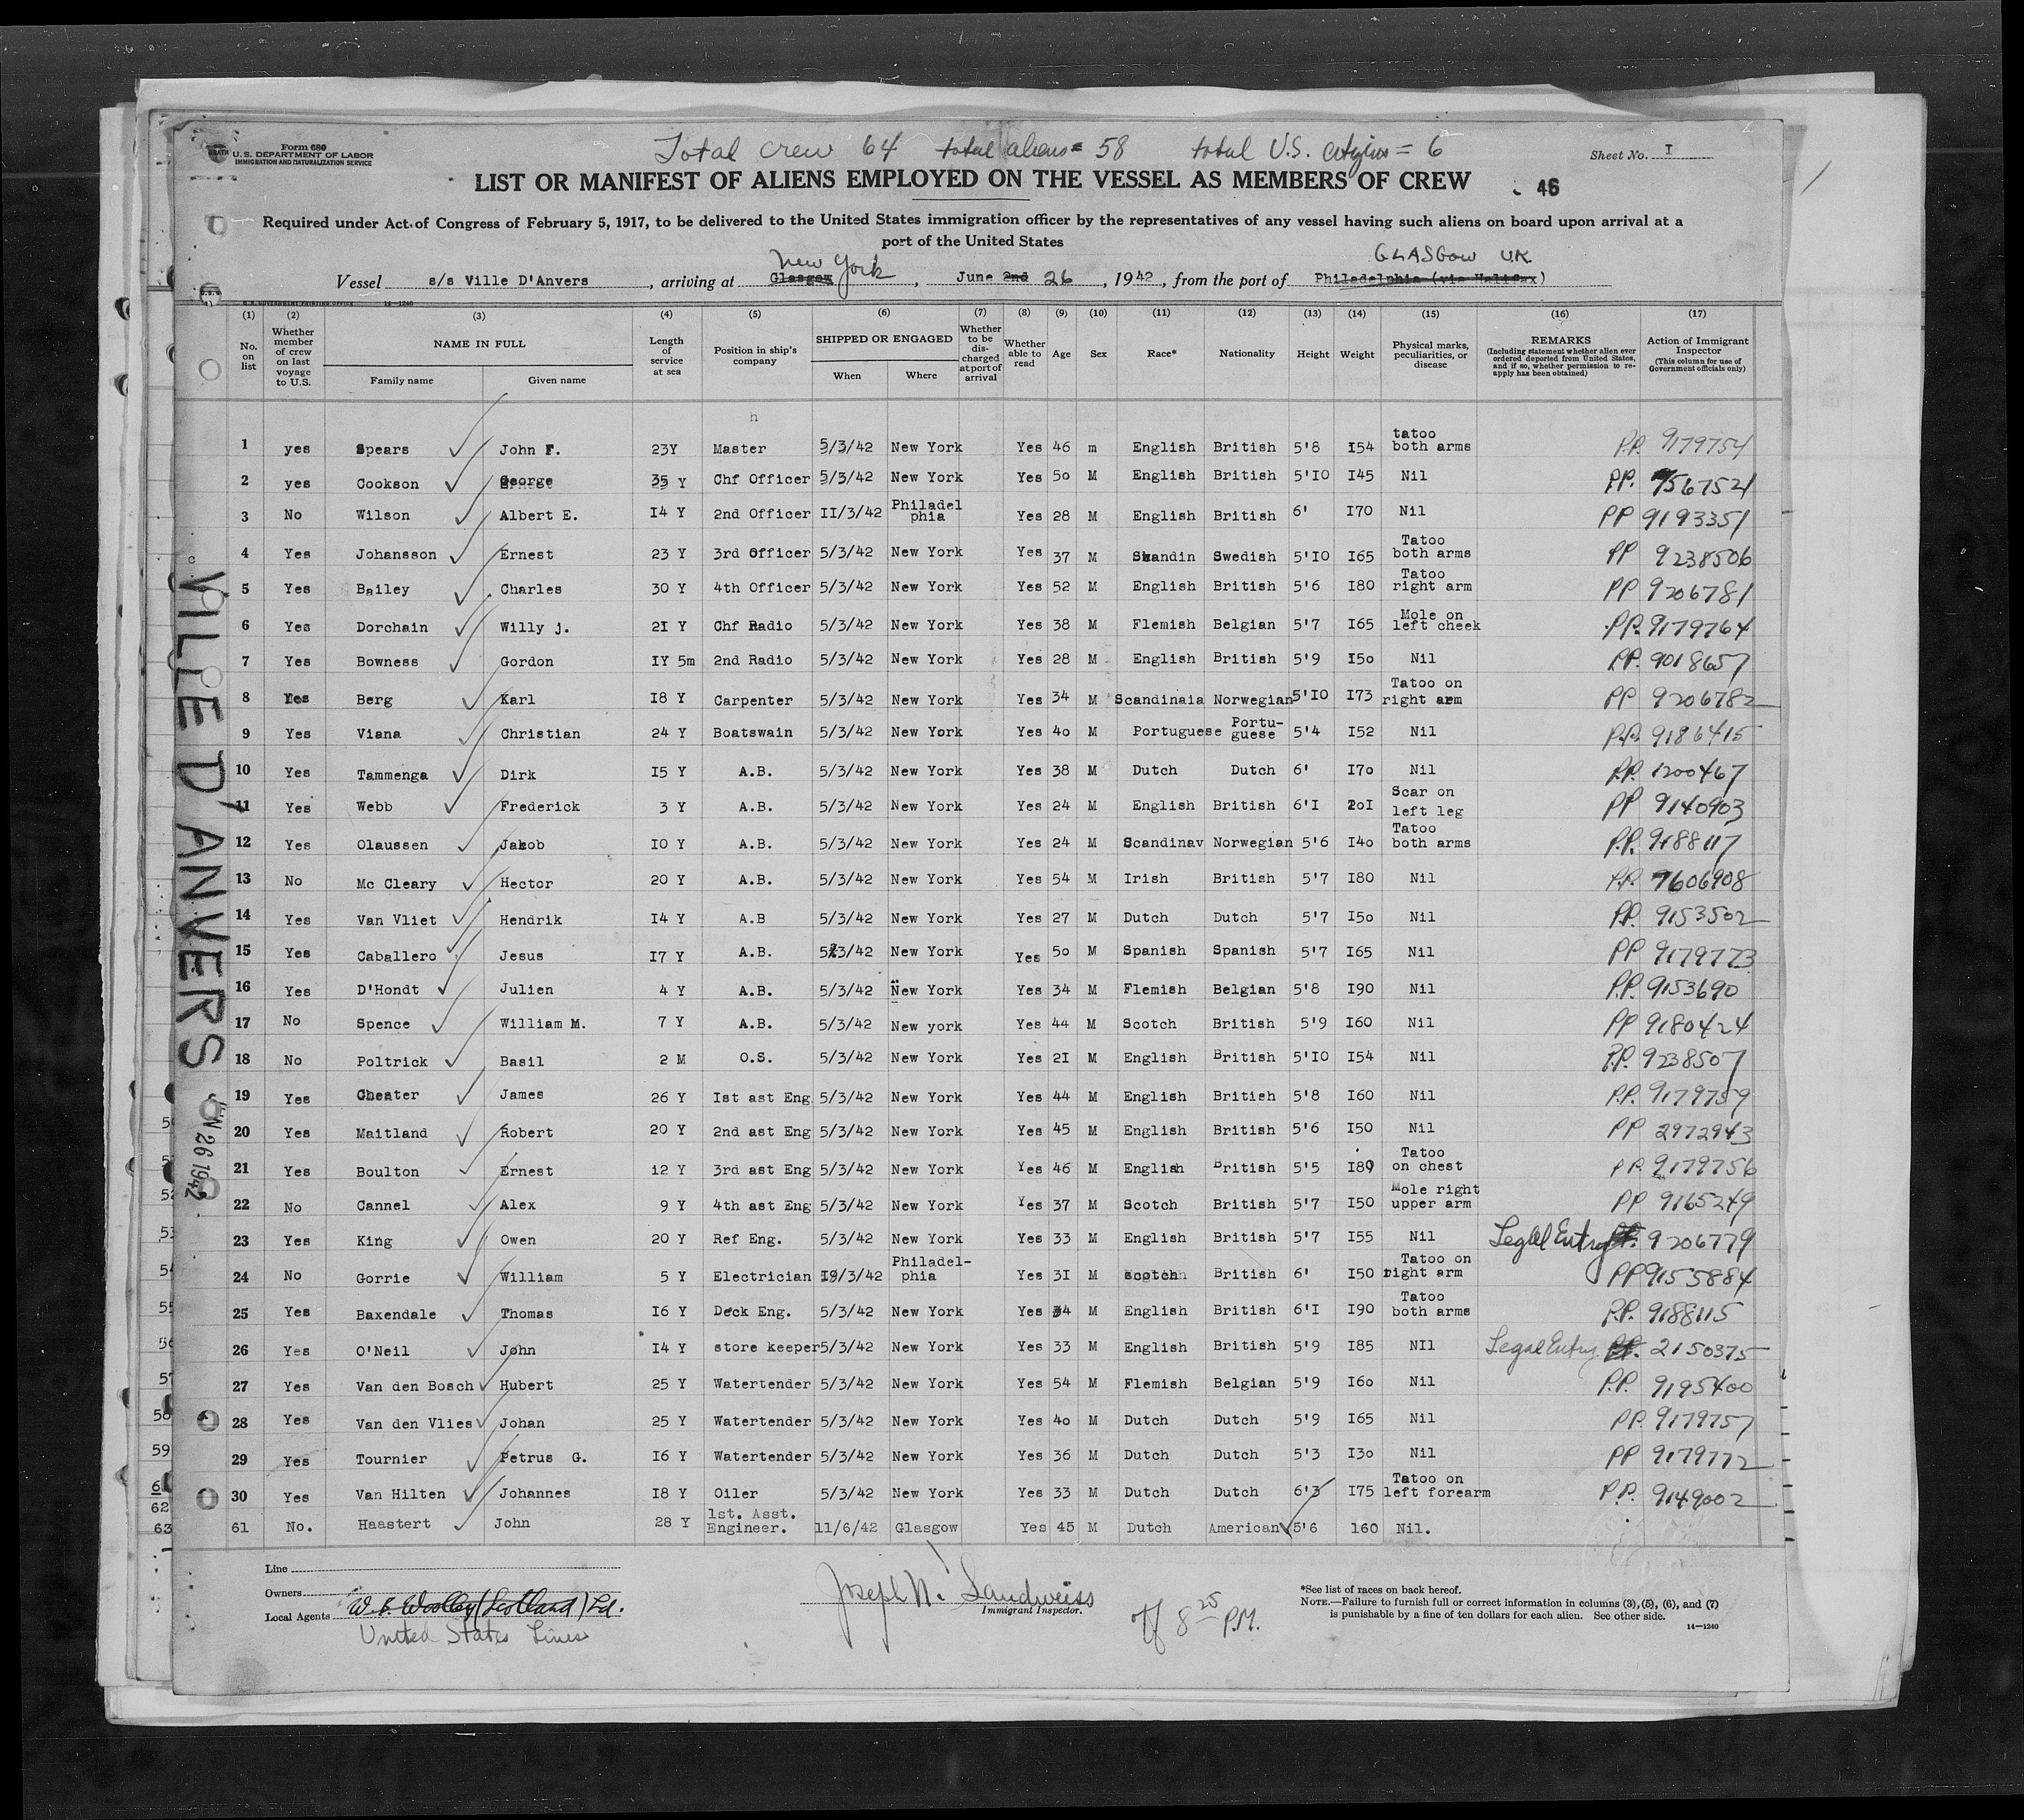 Form 680
U.S. DEPARTMENT OF LABOR
IMMIGRATION AND NATURALIZATION SERVICE
Total crew 64 total aliens = 58 total U.S. citizens = 6
Sheet No. I
LIST OR MANIFEST OF ALIENS EMPLOYED ON THE VESSEL AS MEMBERS OF CREW
46
Required under Act of Congress of February 5, 1917, to be delivered to the United States immigration officer by the representatives of any vessel having such aliens on board upon arrival at a
port of the United States
New York GLASGOW UK
Vessel s/s Ville D'Anvers, arriving at Glasgow, June 2nd 26, 1942, from the port of Philadelphia (via Halifax)
(1) (2) (3) (4) (5) (6) (7) (8) (9) (10) (11) (12) (13) (14) (15) (16) (17)
No. on list
Whether member of crew on last voyage to U.S.
NAME IN FULL
Family name Given name
Length of service at sea
Position in ship's company
SHIPPED OR ENGAGED
When Where
Whether to be discharged at port of arrival
Whether able to read
Age Sex Race* Nationality Height Weight
Physical marks, peculiarities, or disease
REMARKS
(Including statement whether alien ever ordered deported from United States, and if so, whether permission to re-apply has been obtained)
Action of Immigrant Inspector
(This column for use of Government officials only)
h
1 yes Spears John F. 23Y Master 5/3/42 New York Yes 46 m English British 5'8 I54 tatoo both arms P.P. 9179754
2 yes Cookson George 35 Y Chf Officer 5/3/42 New York Yes 5o M English British 5'IO I45 Nil P.P. 7567521
3 No Wilson Albert E. I4 Y 2nd Officer II/3/42 Philadel phia Yes 28 M English British 6' I70 Nil PP 9193351
4 Yes Johansson Ernest 23 Y 3rd Officer 5/3/42 New York Yes 37 M Skandin Swedish 5'IO I65 Tatoo both arms PP 9238506
5 Yes Bailey Charles 30 Y 4th Officer 5/3/42 New York Yes 52 M English British 5'6 I80 Tatoo right arm PP 9206781
6 Yes Dorchain Willy j. 2I Y Chf Radio 5/3/42 New York Yes 38 M Flemish Belgian 5'7 I65 Mole on left cheek P.P. 9179764
7 Yes Bowness Gordon IY 5m 2nd Radio 5/3/42 New York Yes 28 M English British 5'9 I5o Nil P.P. 9018657
8 Yes Berg Karl I8 Y Carpenter 5/3/42 New York Yes 34 M Scandinaia Norwegian 5'IO I73 Tatoo on right arm PP 9206782
9 Yes Viana Christian 24 Y Boatswain 5/3/42 New York Yes 4o M Portuguese Portu-guese 5'4 I52 Nil P.P. 9186415
10 Yes Tammenga Dirk I5 Y A.B. 5/3/42 New York Yes 38 M Dutch Dutch 6' I7o Nil P.P. 1200467
11 Yes Webb Frederick 3 Y A.B. 5/3/42 New York Yes 24 M English British 6'I 2oI Scar on left leg PP 9140903
12 Yes Olaussen Jakob IO Y A.B. 5/3/42 New York Yes 24 M Scandinav Norwegian 5'6 I4o Tatoo both arms P.P. 9188117
13 No Mc Cleary Hector 20 Y A.B. 5/3/42 New York Yes 54 M Irish British 5'7 I80 Nil P.P. 7606908
14 Yes Van Vliet Hendrik I4 Y A.B 5/3/42 New York Yes 27 M Dutch Dutch 5'7 I5o Nil P.P. 9153502
15 Yes Caballero Jesus I7 Y A.B. 5/3/42 New York Yes 5o M Spanish Spanish 5'7 I65 Nil PP 9179773
16 Yes D'Hondt Julien 4 Y A.B. 5/3/42 New York Yes 34 M Flemish Belgian 5'8 I90 Nil P.P. 9153690
17 No Spence William M. 7 Y A.B. 5/3/42 New york Yes 44 M Scotch British 5'9 I60 Nil PP 9180424
18 No Poltrick Basil 2 M O.S. 5/3/42 New York Yes 2I M English British 5'IO I54 Nil P.P. 9238507
19 Yes Cheater James 26 Y Ist ast Eng. 5/3/42 New York Yes 44 M English British 5'8 I60 Nil P.P. 9179759
20 Yes Maitland Robert 20 Y 2nd ast Eng 5/3/42 New York Yes 45 M English British 5'6 I50 Nil PP 2972943
21 Yes Boulton Ernest i2 Y 3rd ast Eng 5/3/42 New York Yes 46 M English British 5'5 I89 Tatoo on chest P.P. 9179756
22 No Cannel Alex 9 Y 4th ast Eng 5/3/42 New York Yes 37 M Scotch British 5'7 I50 Mole right upper arm PP 9165249
23 Yes King Owen 20 Y Ref Eng. 5/3/42 New York Yes 33 M English British 5'7 I55 Nil Legal Entry P.P. 9206779
24 No Gorrie William 5 Y Electrician I9/3/42 Philadel-phia Yes 3I M scotch British 6' I50 Tatoo on right arm PP 9155884
25 Yes Baxendale Thomas I6 Y Deck Eng. 5/3/42 New York Yes 34 M English British 6'I I90 Tatoo both arms P.P. 9188115
26 Yes O'Neil John I4 Y store keeper 5/3/42 New York Yes 33 M English British 5'9 I85 NIl Legal Entry P.P. 2150375
27 Yes Van den Bosch Hubert 25 Y Watertender 5/3/42 New York Yes 54 M Flemish Belgian 5'9 I6o Nil P.P. 9195400
28 Yes Van den Vlies Johan 25 Y Watertender 5/3/42 New York Yes 4o M Dutch Dutch 5'9 I65 Nil P.P. 9179757
29 Yes Tournier Petrus G. I6 Y Watertender 5/3/42 New York Yes 36 M Dutch Dutch 5'3 I3o Nil PP 9179772
30 Yes Van Hilten Johannes I8 Y Oiler 5/3/42 New York Yes 33 M Dutch Dutch 6'3 I75 Tatoo on left forearm P.P. 9149002
61 No. Haastert John 28 Y 1st. Asst. Engineer. 11/6/42 Glasgow Yes 45 M Dutch American 5'6 160 Nil.
VILLE D'ANVERS
JUN 26 1942
Line
Owners
Local Agents W. B. Woolley (Scotland) Ld.
United States Lines
Joseph N. Landweiss
Immigrant Inspector.
Off 8 25 P.M.
*See list of races on back hereof.
NOTE.—Failure to furnish full or correct information in columns (3), (5), (6), and (7)
is punishable by a fine of ten dollars for each alien. See other side.
14—1240